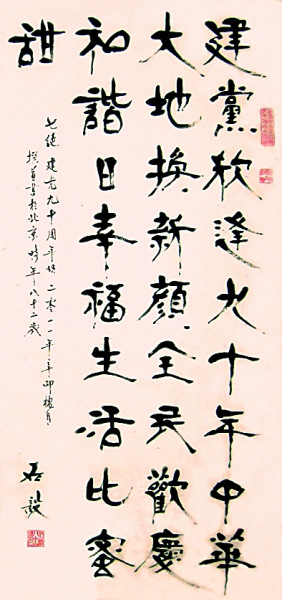 建黨欣逢九十年中華
大地換新顏全民歡慶
和諧日幸福生活比蜜
甜
七绝 建党九十周年頌 二零一一年辛卯槐月
撰並書於北京時年八十二歲
毅